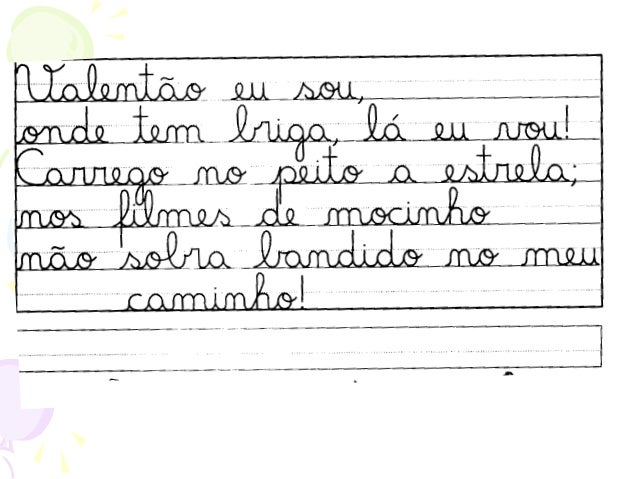 Valentão eu sou,
onde tem briga, lá eu vou!
Carrego no peito a estrela;
nos filmes de mocinho
não sobra bandido no meu
caminho!